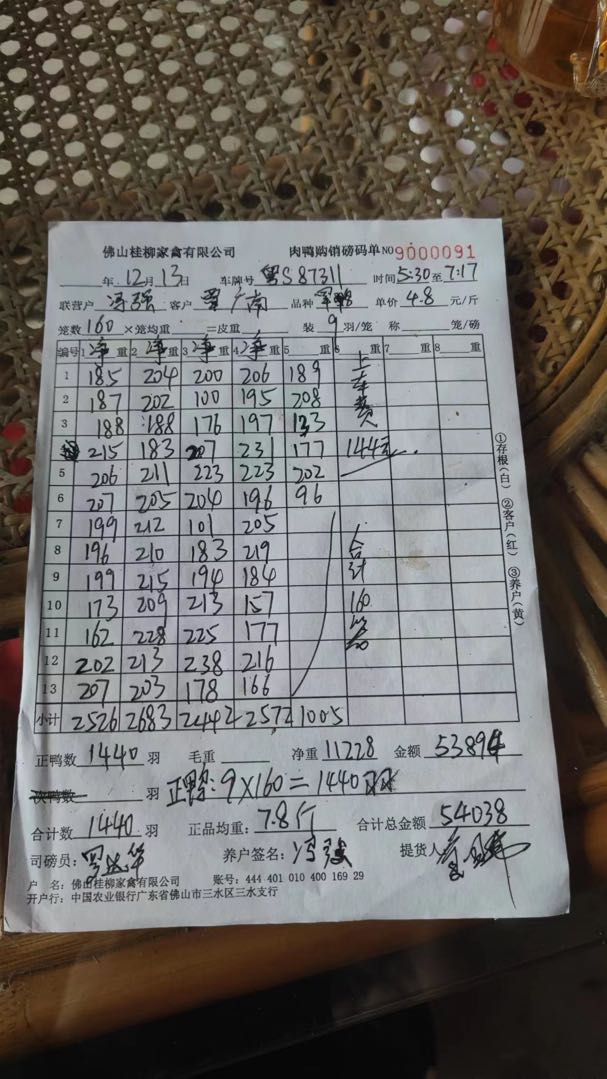 佛山桂柳家禽有限公司 肉鸭购销磅码单 NO 9000091
年 12月13日 车牌号 粤S87311 时间 5:30 至 7:17
联营户 冯强 客户 广南 品种 单价 4.8 元/斤
笼数 160 ×笼均重 =皮重 装 9 羽/笼 称 笼/磅
编号 1 净重 2 净重 3 净重 4 净重 5 重 6 重 7 重 8 重
1 185 204 200 206 189
2 187 202 100 195 208
3 188 188 176 197 133
215 183 207 231 177
5 206 211 223 223 202
6 207 205 204 196 96
7 199 212 101 205
8 196 210 183 219
9 199 215 194 184
10 173 209 213 157
11 162 228 225 177
12 202 213 238 216
13 207 203 178 166
小计 2526 2683 2442 2572 1005
上车费
144元
合计160笼
①存根(白) ②客户(红) ③养户(黄)
正鸭数 1440 羽 毛重 净重 11228 金额 53894
次鸭数 羽 正鸭:9×160=1440羽
合计数 1440 羽 正品均重: 7.8斤 合计总金额 54038
司磅员: 养户签名: 冯强 提货人
户 名: 佛山桂柳家禽有限公司 账号: 444 401 010 400 169 29
开户行: 中国农业银行广东省佛山市三水区三水支行